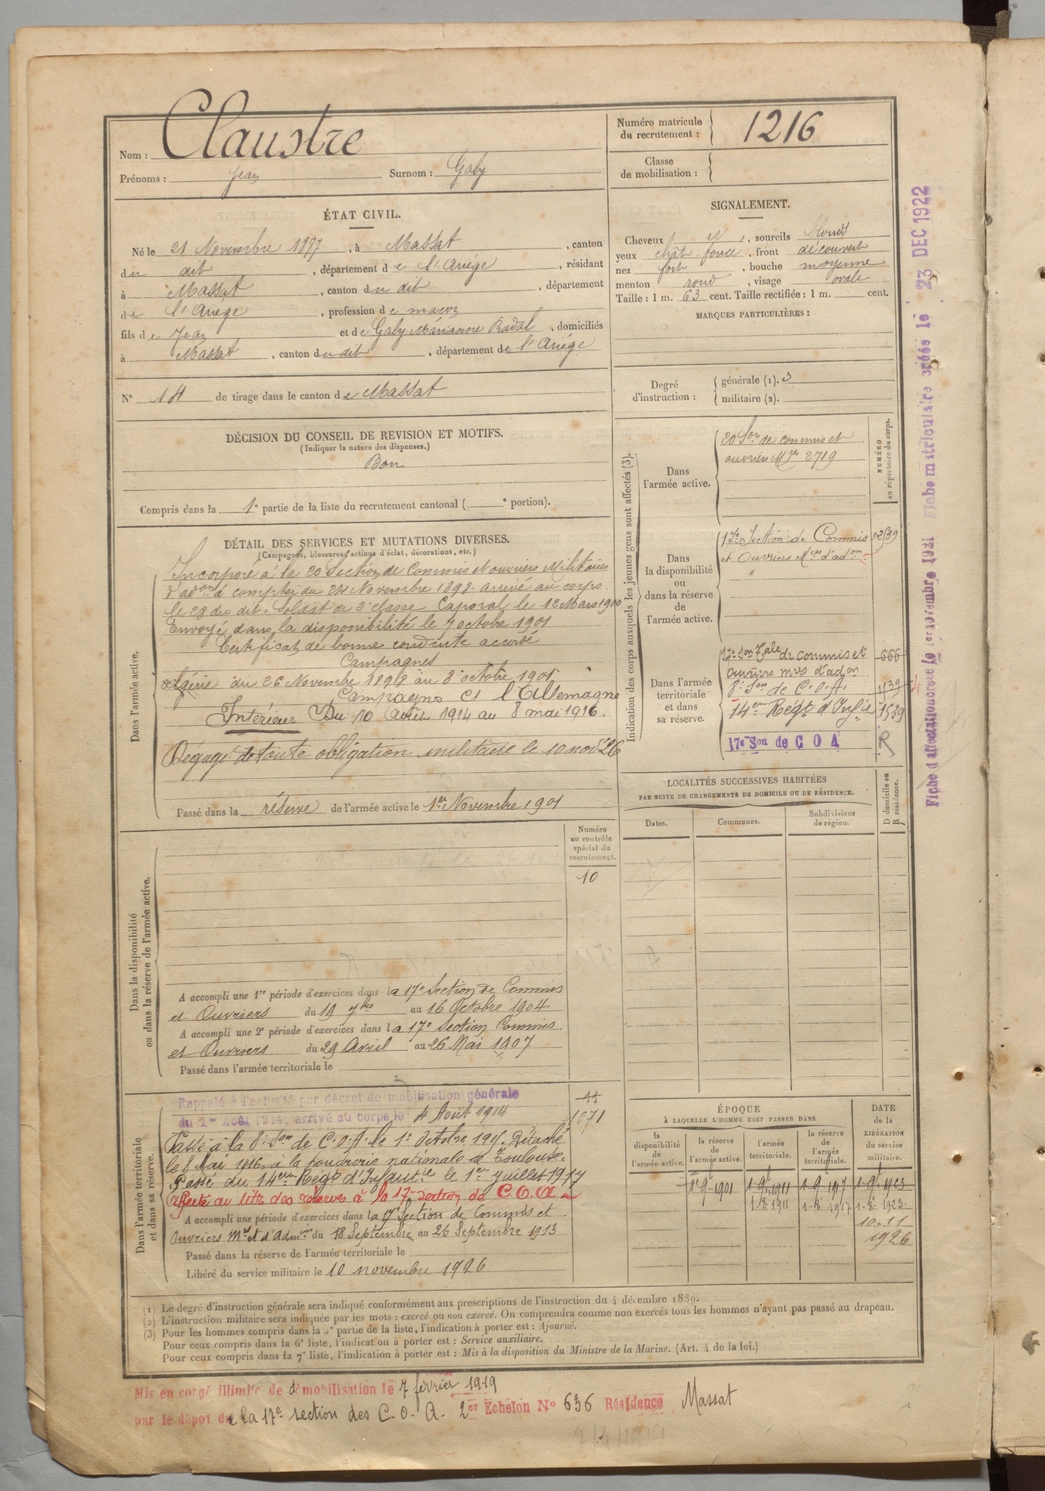 Nom : Claustre
Prénoms : Jean Surnom : Gaby
Numéro matricule
du recrutement : 1216
Classe
de mobilisation :
ÉTAT CIVIL.
Né le 21 Novembre 1877, à Massat, canton
du dit, département de l'Ariège, résidant
à Massat, canton du dit, département
de l'Ariège, profession de maçon
fils de Jean et de Gaby Marianne Radal, domiciliés
à Massat, canton du dit, département de l'Ariège
N° 14 de tirage dans le canton de Massat
SIGNALEMENT.
Cheveux et, sourcils
yeux chât. foncé, front découvert
nez fort, bouche moyenne
menton rond, visage ovale
Taille : 1 m. 63 cent. Taille rectifiée : 1 m. cent.
MARQUES PARTICULIÈRES :
Degré
d'instruction :
générale (1). 3
militaire (2).
DÉCISION DU CONSEIL DE REVISION ET MOTIFS.
(Indiquer la nature des dispenses.)
Bon
Compris dans la 1e partie de la liste du recrutement cantonal ( e portion).
DÉTAIL DES SERVICES ET MUTATIONS DIVERSES.
(Campagnes, blessures, actions d'éclat, décorations, etc.)
Dans l'armée active.
Incorporé à la 20 Section de Commis et ouvriers Militaires
d'adon à compter du 24 Novembre 1898 arrivé au corps
le 29 du dit. Soldat de 2e classe Caporal le 12 Mars 1900
Envoyé dans la disponibilité le 7 octobre 1901
Certificat de bonne conduite accordé
Campagnes
Algérie du 26 Novembre 1898 au 8 octobre 1901
Campagne Ct l'Allemagne
Intérieur Du 10 Août 1914 au 8 mai 1916.
Dégagé de toute obligation militaire le 10 nov 26
Passé dans la réserve de l'armée active le 1er Novembre 1901
Indication des corps auxquels les jeunes gens sont affectés (3).
NUMÉRO
au répertoire du corps.
Dans
l'armée active.
20 Son de commis et
ouvriers Mres 2719
Dans
la disponibilité
ou
dans la réserve
de
l'armée active.
17e Section de Commis
et Ouvriers Mres d'adon
Dans l'armée
territoriale
et dans
sa réserve.
17e Son Tale de commis et 666
ouvriers mres d'adon
8e Son de C.O.A.
14em Régt d'Infie 1539
17e Son de C O A R
LOCALITÉS SUCCESSIVES HABITÉES
PAR SUITE DE CHANGEMENTS DE DOMICILE OU DE RÉSIDENCE.
Dates. Communes. Subdivisions
de région.
D domicile ou
R résidence.
Numéro
au contrôle
spécial du
recrutement.
10
Dans la disponibilité
ou dans la réserve de l'armée active.
A accompli une 1re période d'exercices dans la 17e Section de Commis
et Ouvriers du 19 7bre au 16 Octobre 1904
A accompli une 2e période d'exercices dans la 17e Section Commis
et Ouvriers du 29 Avril au 26 Mai 1907
Passé dans l'armée territoriale le
Dans l'armée territoriale
et dans sa réserve.
Rappelé à l'activité par décret de mobilisation générale
du 1er Août 1914, arrivé au corps le 4 Août 1914
1071
Passé à la 8e Son de C.O.A. le 1er Octobre 1915. Détaché
le 8 Mai 1916 à la poudrerie nationale de Toulouse.
Passé du 14em Régt d'Infantie le 1er Juillet 1917
Affecté au titre des réserves à la 17e section de C.O.A.
A accompli une période d'exercices dans la 17e Section de Commis et
Ouvriers Mres d'Admon du 18 Septembre au 26 Septembre 1913
Passé dans la réserve de l'armée territoriale le
Libéré du service militaire le 10 novembre 1926
ÉPOQUE
À LAQUELLE L'HOMME DOIT PASSER DANS
la
disponibilité
de
l'armée active.
la réserve
de
l'armée active.
l'armée
territoriale.
la réserve
de
l'armée
territoriale.
DATE
de la
LIBÉRATION
du service
militaire.
1-9-1901 1-9-1911 1-9-1917 1-9-1923
1-8-1911 1-8-1917 1-8-1923
10-11
1926
(1) Le degré d'instruction générale sera indiqué conformément aux prescriptions de l'instruction du 4 décembre 1889.
(2) L'instruction militaire sera indiquée par les mots : exercé ou non exercé. On comprendra comme non exercés tous les hommes n'ayant pas passé au drapeau.
(3) Pour les hommes compris dans la 5e partie de la liste, l'indication à porter est : Ajourné.
Pour ceux compris dans la 6e liste, l'indication à porter est : Service auxiliaire.
Pour ceux compris dans la 7e liste, l'indication à porter est : Mis à la disposition du Ministre de la Marine. (Art. 4 de la loi.)
Mis en congé illimité de démobilisation le 7 février 1919
par le dépôt de la 17e section des C.O.A. 2er Echelon N° 636 Résidence Massat
Fiche d'affectation créée le 1er novembre 1921 Fiche matriculaire créée le 23 DEC 1922